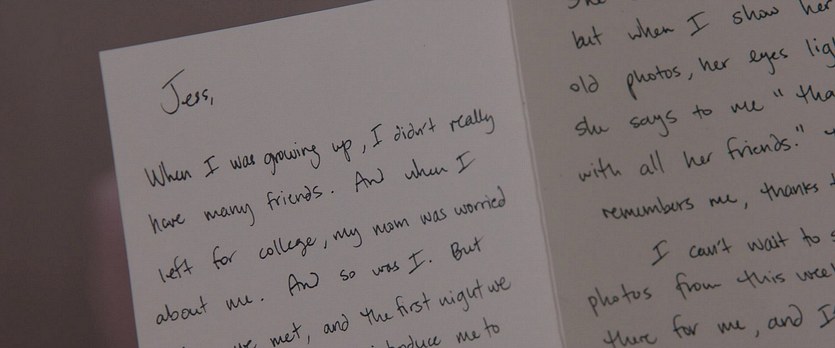 Jess,
When I was growing up, I didn't really
have many friends. And when I
left for college, my mom was worried
about me. And so was I. But
met, and the first night we
me to
but when I show her
old photos, her eyes
she says to me "
with all her friends."
remembers me, thanks
I can't wait to
photos from this
there for me, and